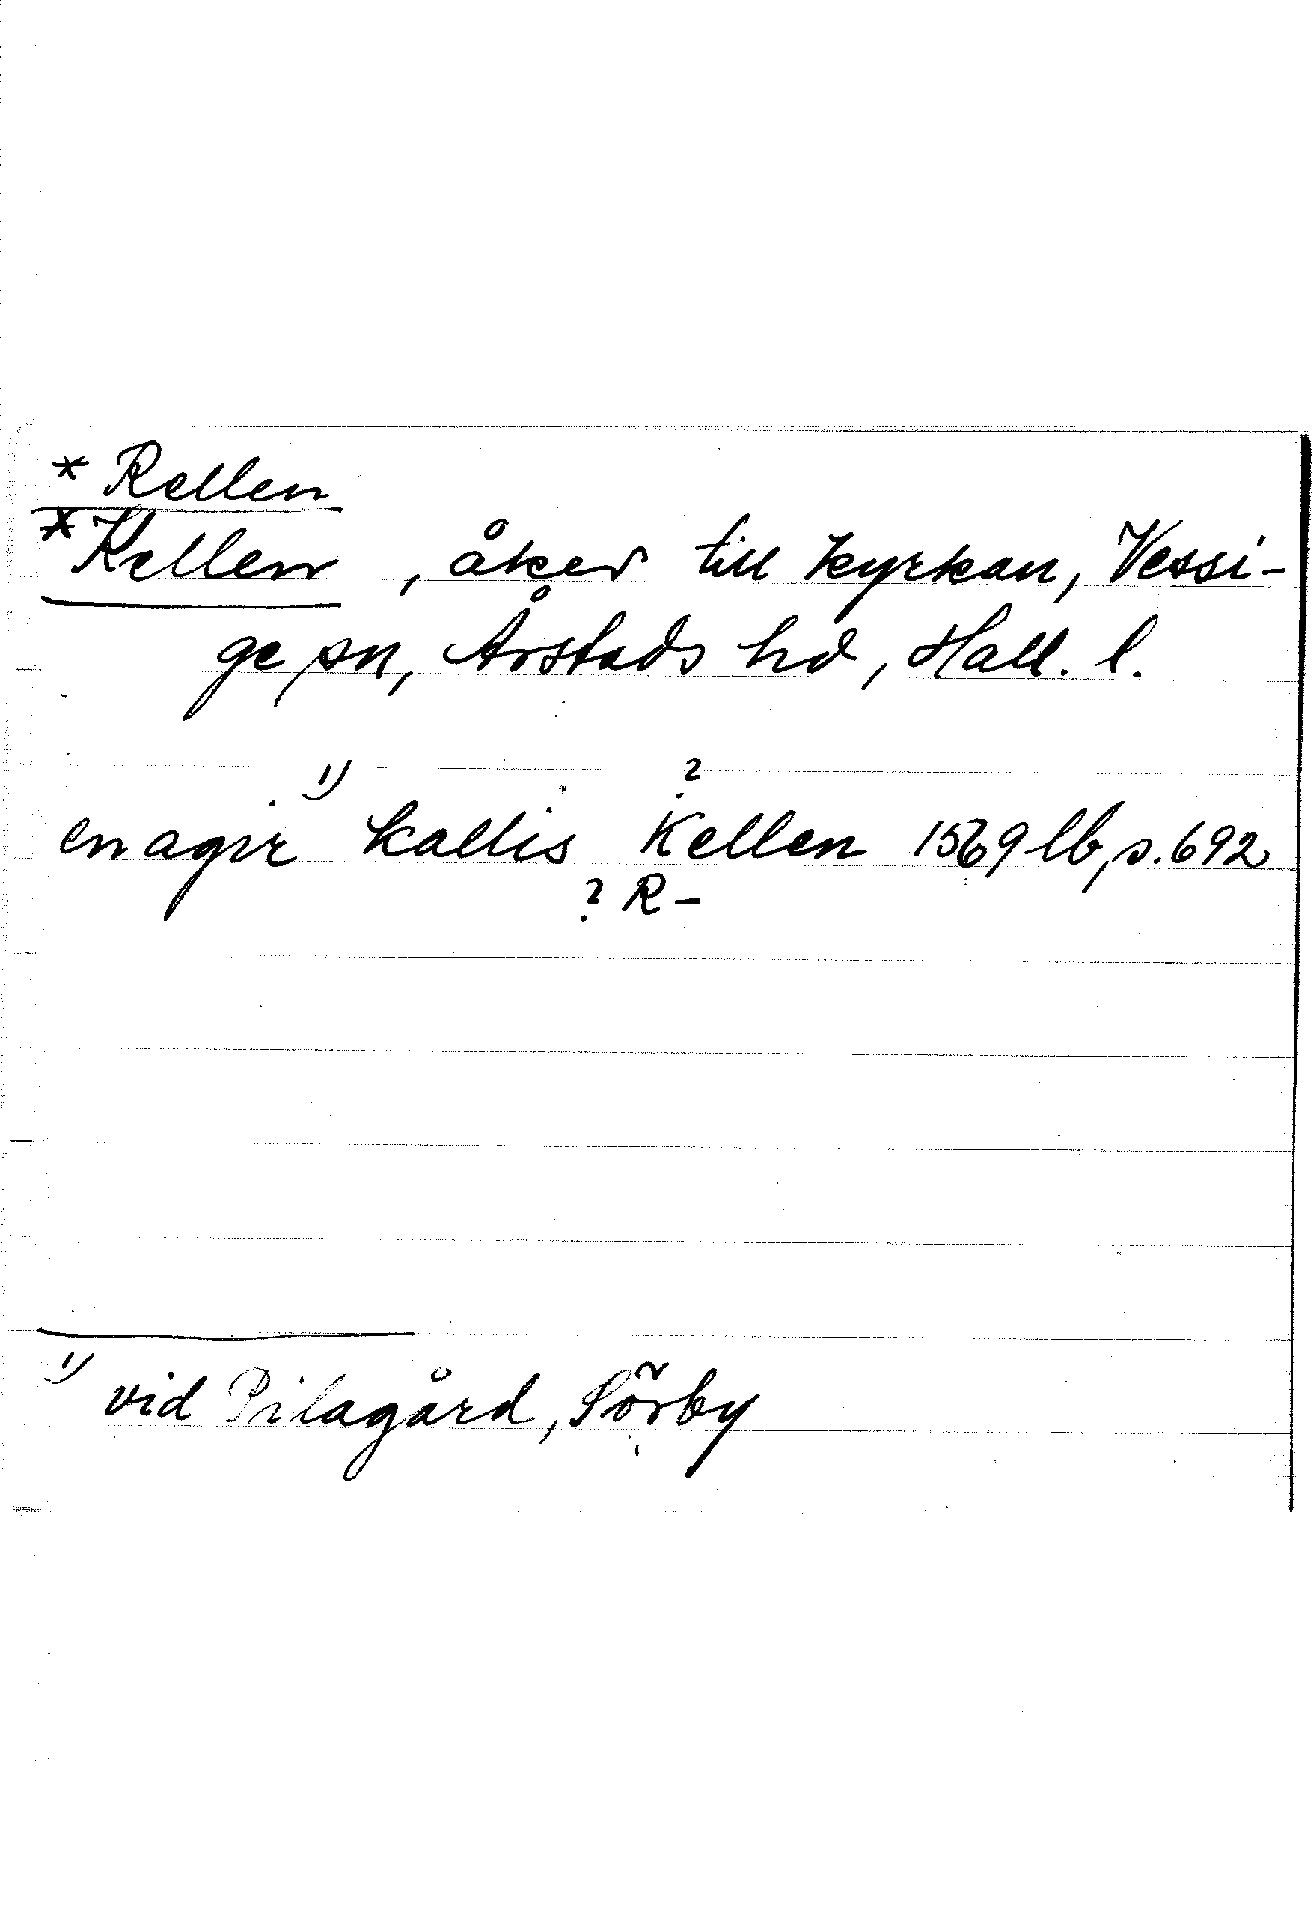 * Rellen
* Kellen, åker till kyrkan, Vessi-
ge sn, Årstads hd, Hall. l.
1) ?
en agir kallis Kellen 1569 lb, s. 692
? R -
1) vid Pilagård, Sörby